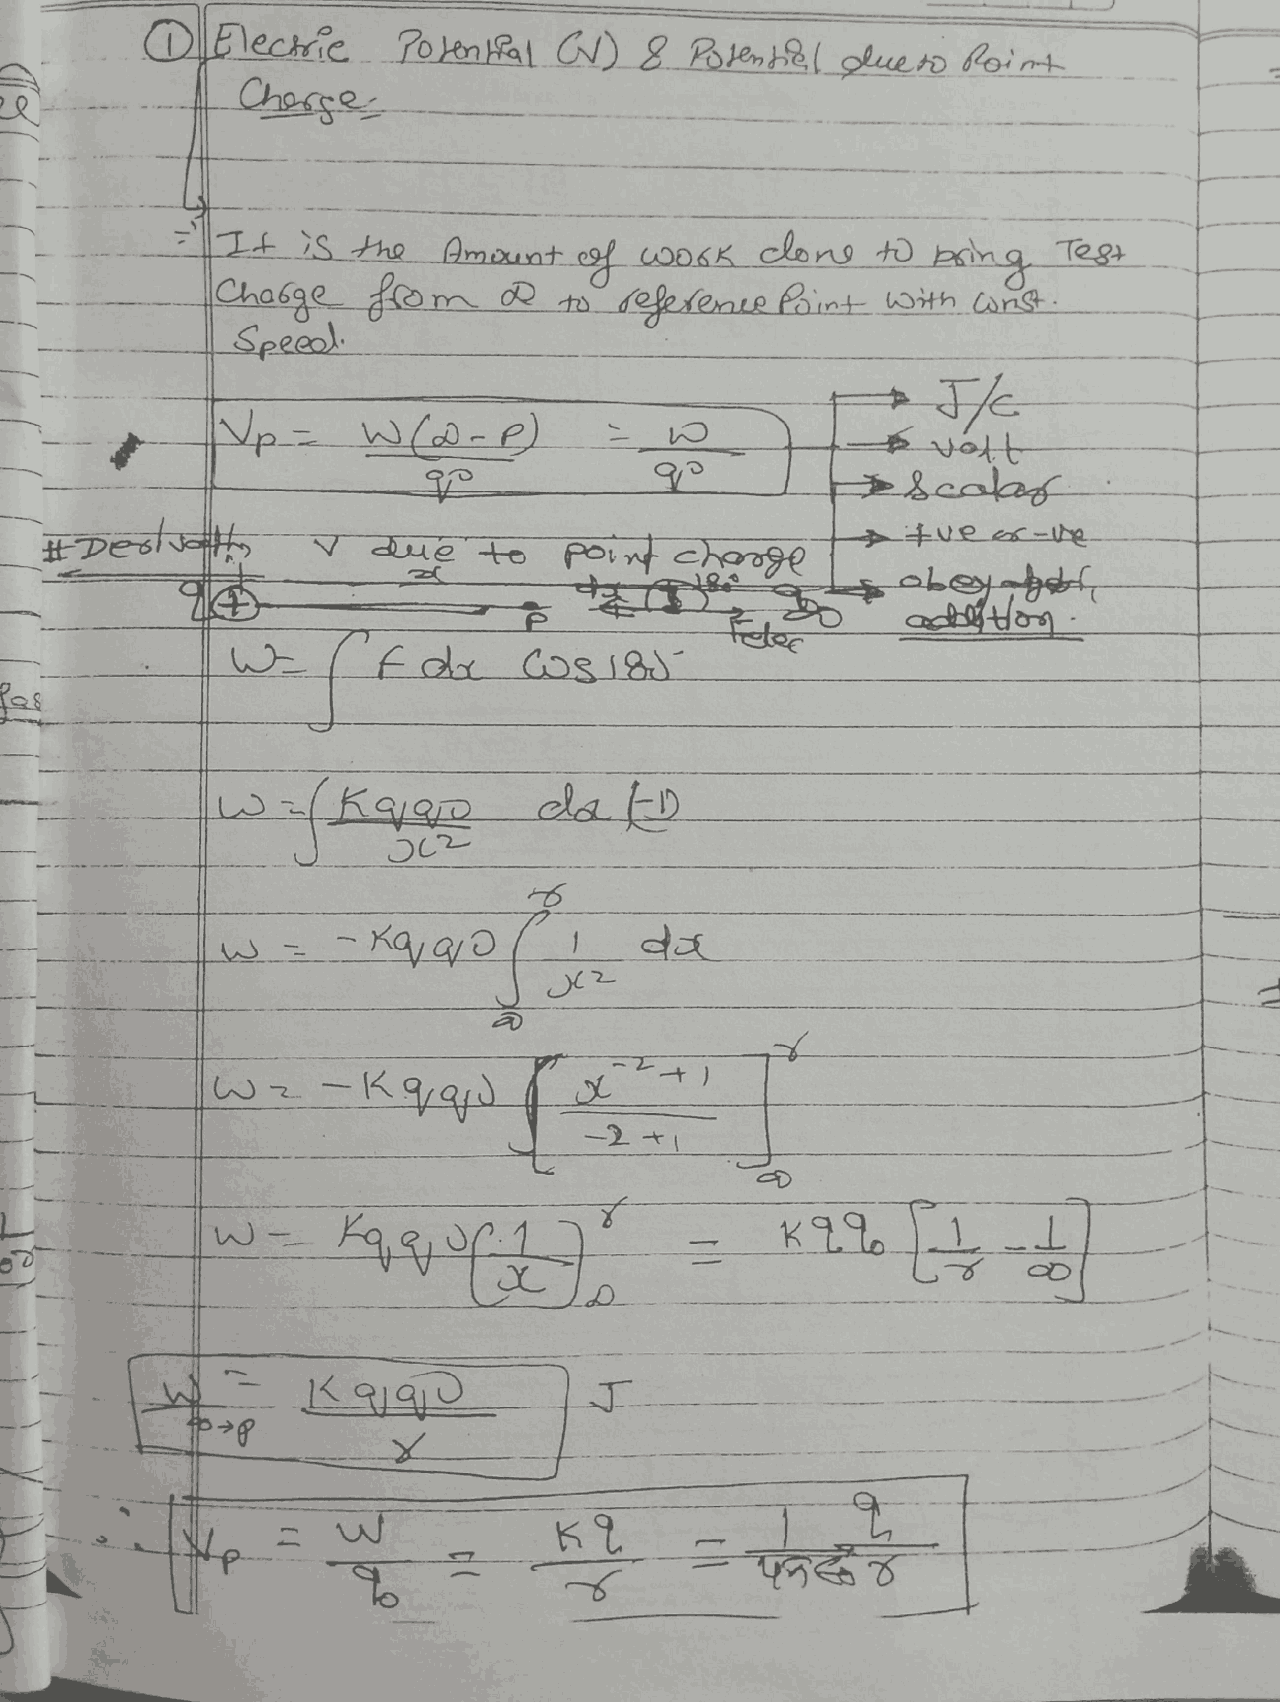 ① Electric Potential (V) & Potential due to Point
Charge:
⇒ It is the Amount of work done to bring Test
Charge from ∞ to reference Point with const.
Speed.
Vp = W(∞-P)/q0 = W/q0
→ J/C
→ volt
→ Scalar
→ +ve or -ve
→ obey
addition.
# Derivatn V due to point charge
q + x P dx 180° q0 Felec
W = ∫ F dx Cos180
W = ∫ Kqq0/x² dx (-1)
W = -Kqq0 ∫∞^r 1/x² dx
W = -Kqq0 [x^(-2+1)/(-2+1)]∞^r
W = Kqq0 (1/x)∞^r = Kqq0 [1/r - 1/∞]
W∞→P = Kqq0/r J
∴ Vp = W/q0 = Kq/r = 1/4π∈0 q/r